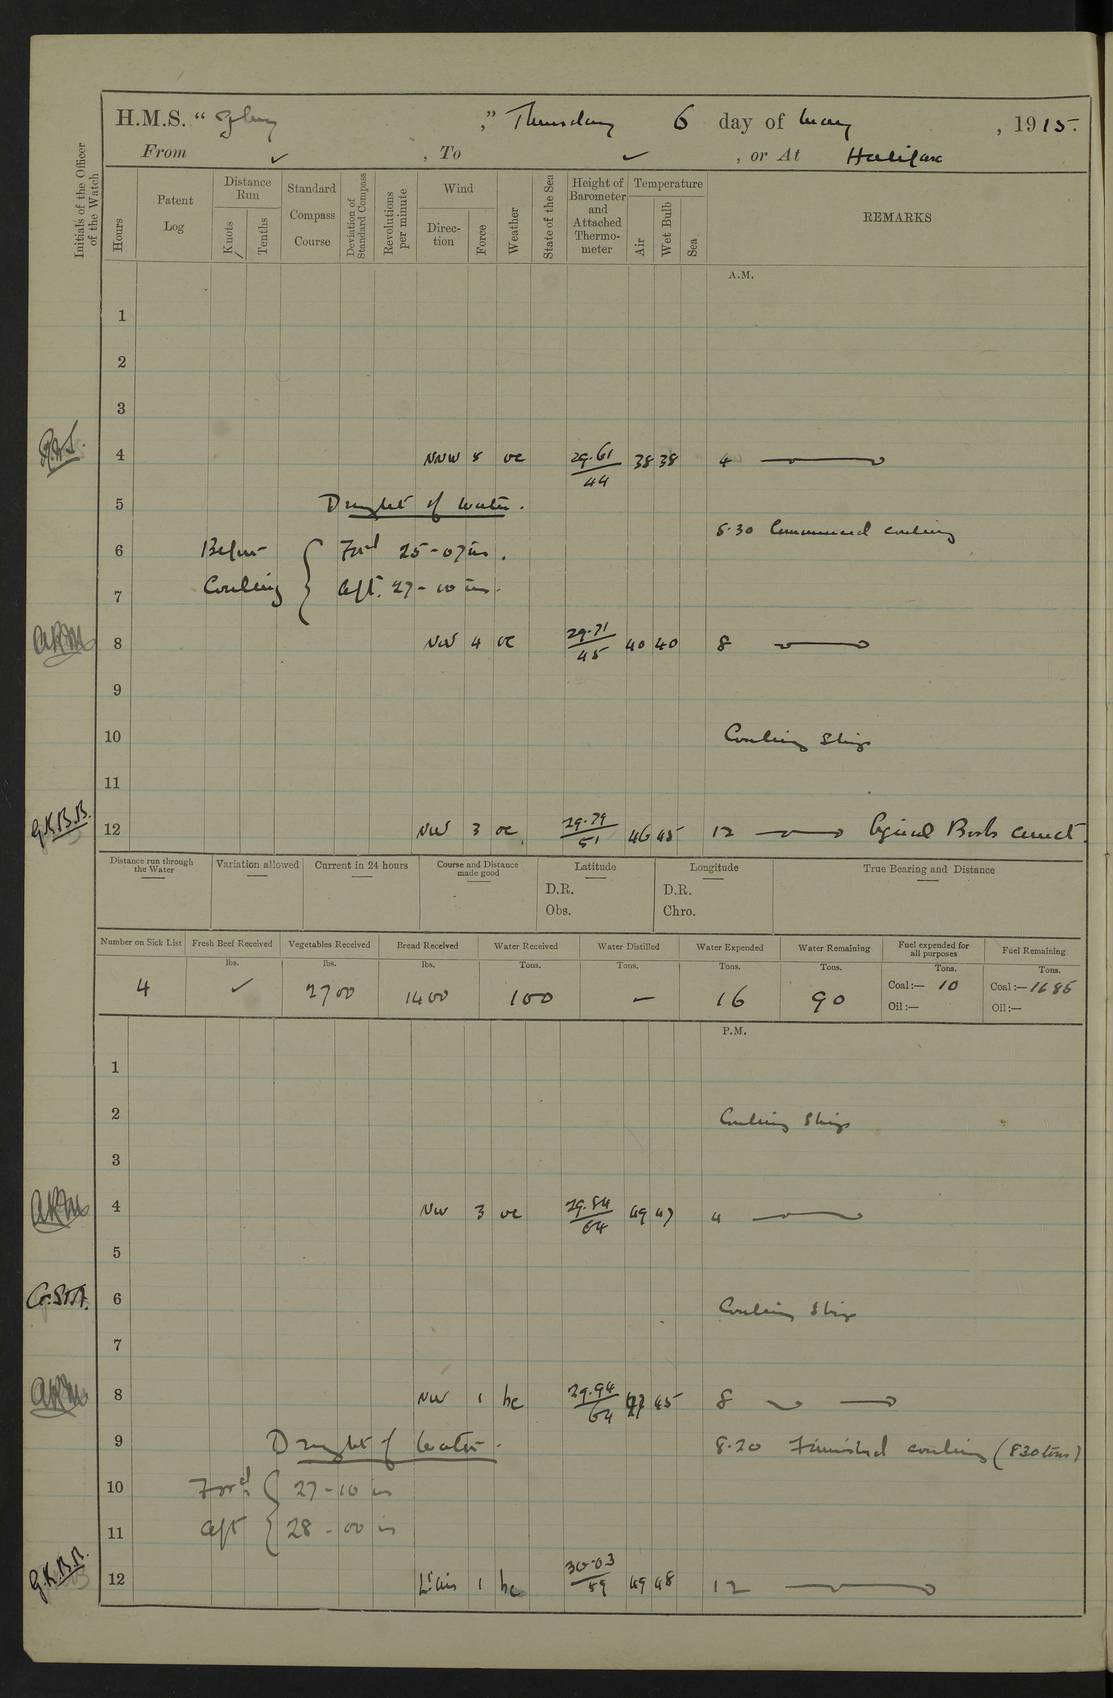 H.M.S. “ Glory ,” Thursday 6 day of May , 1915.
From ✓ , To ✓ , or At Halifax
Initials of the Officer of the Watch
Hours
Patent Log
Distance Run
Knots
Tenths
Standard Compass Course
Deviation of Standard Compass
Revolutions per minute
Wind
Direction
Force
Weather
State of the Sea
Height of Barometer and Attached Thermometer
Temperature
Air
Wet Bulb
Sea
REMARKS
A.M.
1
2
3
4 NNW 5 oc 29.61/44 38 38 4
5 Draught of Water.
5.30 Commenced coaling
6 Before Ford 25 - 07 ins.
7 Coaling Aft. 27 - 10 ins.
8 NW 4 oc 29.71/45 40 40 8
9
10 Coaling Ship
11
G.K.B.B. 12 NW 3 oc 29.79/51 46 45 12 Signed Books correct
Distance run through the Water
Variation allowed
Current in 24 hours
Course and Distance made good
Latitude
D.R.
Obs.
Longitude
D.R.
Chro.
True Bearing and Distance
Number on Sick List
4
Fresh Beef Received
lbs.
✓
Vegetables Received
lbs.
2700
Bread Received
lbs.
1400
Water Received
Tons.
100
Water Distilled
Tons.
—
Water Expended
Tons.
16
Water Remaining
Tons.
90
Fuel expended for all purposes
Tons.
Coal:— 10
Oil:—
Fuel Remaining
Tons.
Coal:— 1685
Oil:—
P.M.
1
2 Coaling Ship
3
4 NW 3 oc 29.84/64 49 47 4
5
6 Coaling Ship
7
8 NW 1 bc 29.94/64 47 45 8
9 Draught of Water. 8.20 Finished coaling (830 tons)
10 Ford 27 - 10 in
11 Aft 28 - 00 in
G.K.B.B. 12 Lt airs 1 bc 30.03/59 49 48 12